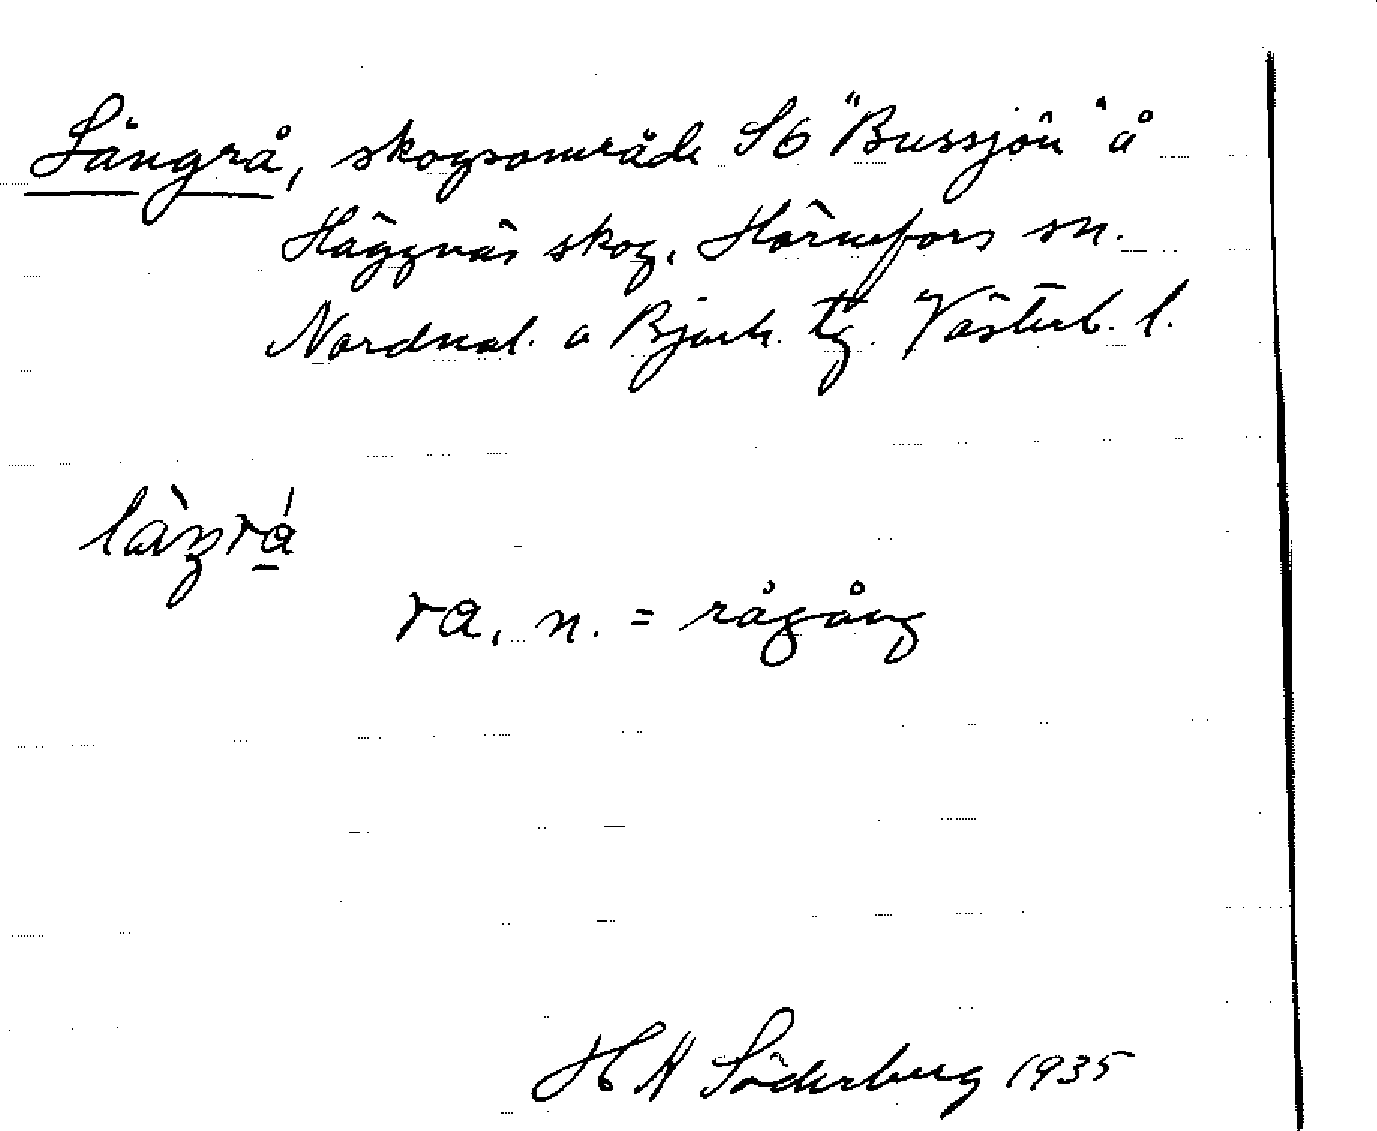 Långrå, skogsområde SO "Bussjön" å
Häggnäs skog, Hörnefors sn.
Nordmal. o Bjurh. tg. Västerb. l.
la̱ŋrá̱
ra, n. = rågång
H N Söderberg 1935